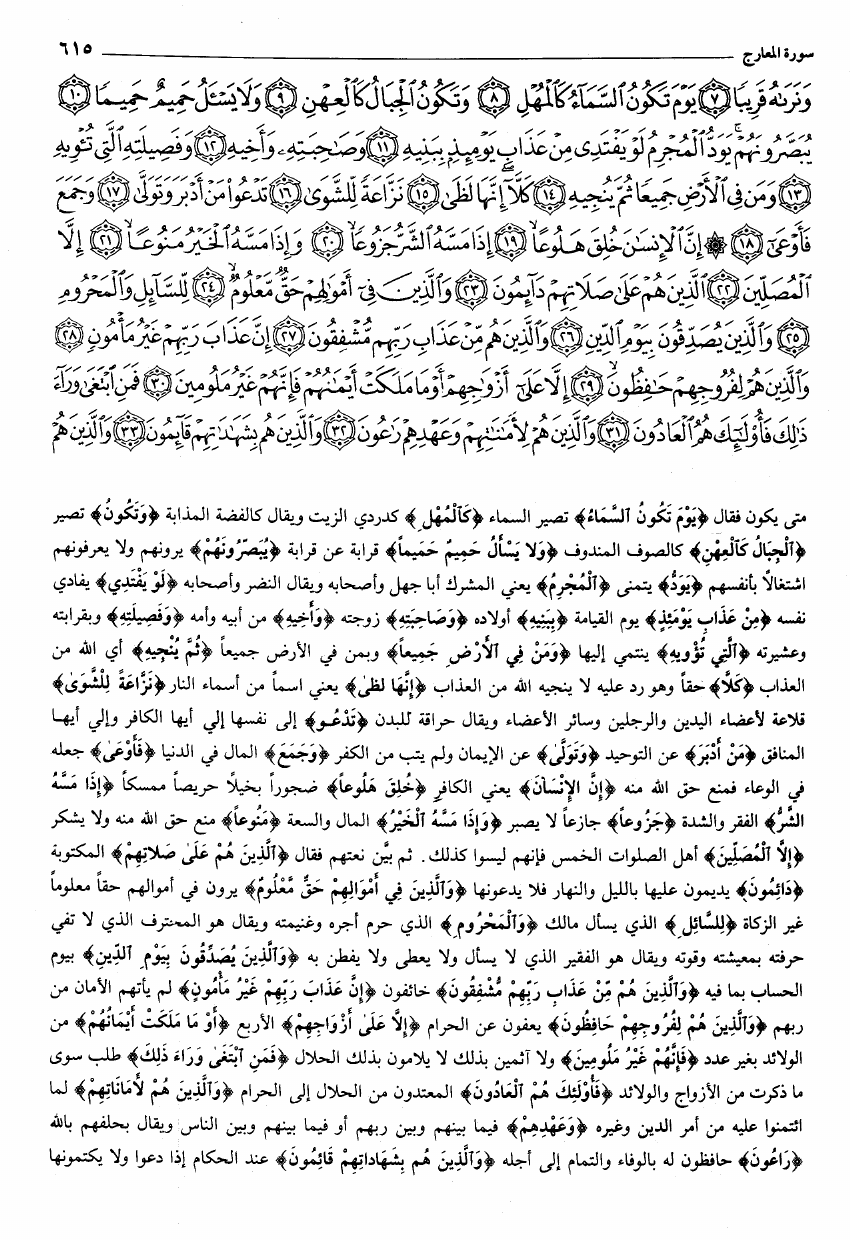 سورة المعارج ٦١٥
وَنَرَىٰهُ قَرِيبًا ﴿٧﴾ يَوْمَ تَكُونُ ٱلسَّمَآءُ كَٱلْمُهْلِ ﴿٨﴾ وَتَكُونُ ٱلْجِبَالُ كَٱلْعِهْنِ ﴿٩﴾ وَلَا يَسْـَٔلُ حَمِيمٌ حَمِيمًا ﴿١٠﴾
يُبَصَّرُونَهُمْ ۚ يَوَدُّ ٱلْمُجْرِمُ لَوْ يَفْتَدِى مِنْ عَذَابِ يَوْمِئِذٍۭ بِبَنِيهِ ﴿١١﴾ وَصَـٰحِبَتِهِۦ وَأَخِيهِ ﴿١٢﴾ وَفَصِيلَتِهِ ٱلَّتِى تُـْٔوِيهِ
﴿١٣﴾ وَمَن فِى ٱلْأَرْضِ جَمِيعًا ثُمَّ يُنجِيهِ ﴿١٤﴾ كَلَّآ ۖ إِنَّهَا لَظَىٰ ﴿١٥﴾ نَزَّاعَةً لِّلشَّوَىٰ ﴿١٦﴾ تَدْعُوا۟ مَنْ أَدْبَرَ وَتَوَلَّىٰ ﴿١٧﴾ وَجَمَعَ
فَأَوْعَىٰٓ ﴿١٨﴾ ۞ إِنَّ ٱلْإِنسَـٰنَ خُلِقَ هَلُوعًا ﴿١٩﴾ إِذَا مَسَّهُ ٱلشَّرُّ جَزُوعًا ﴿٢٠﴾ وَإِذَا مَسَّهُ ٱلْخَيْرُ مَنُوعًا ﴿٢١﴾ إِلَّا
ٱلْمُصَلِّينَ ﴿٢٢﴾ ٱلَّذِينَ هُمْ عَلَىٰ صَلَاتِهِمْ دَآئِمُونَ ﴿٢٣﴾ وَٱلَّذِينَ فِىٓ أَمْوَٰلِهِمْ حَقٌّ مَّعْلُومٌ ﴿٢٤﴾ لِّلسَّآئِلِ وَٱلْمَحْرُومِ
﴿٢٥﴾ وَٱلَّذِينَ يُصَدِّقُونَ بِيَوْمِ ٱلدِّينِ ﴿٢٦﴾ وَٱلَّذِينَ هُم مِّنْ عَذَابِ رَبِّهِم مُّشْفِقُونَ ﴿٢٧﴾ إِنَّ عَذَابَ رَبِّهِمْ غَيْرُ مَأْمُونٍ ﴿٢٨﴾
وَٱلَّذِينَ هُمْ لِفُرُوجِهِمْ حَـٰفِظُونَ ﴿٢٩﴾ إِلَّا عَلَىٰٓ أَزْوَٰجِهِمْ أَوْ مَا مَلَكَتْ أَيْمَـٰنُهُمْ فَإِنَّهُمْ غَيْرُ مَلُومِينَ ﴿٣٠﴾ فَمَنِ ٱبْتَغَىٰ وَرَآءَ
ذَٰلِكَ فَأُو۟لَـٰٓئِكَ هُمُ ٱلْعَادُونَ ﴿٣١﴾ وَٱلَّذِينَ هُمْ لِأَمَـٰنَـٰتِهِمْ وَعَهْدِهِمْ رَٰعُونَ ﴿٣٢﴾ وَٱلَّذِينَ هُم بِشَهَـٰدَٰتِهِمْ قَآئِمُونَ ﴿٣٣﴾ وَٱلَّذِينَ هُمْ
متى يكون فقال ﴿يَوْمَ تَكُونُ ٱلسَّمَاءُ﴾ تصير السماء ﴿كَٱلْمُهْلِ﴾ كدردي الزيت ويقال كالفضة المذابة ﴿وَتَكُونُ﴾ تصير
﴿ٱلْجِبَالُ كَٱلْعِهْنِ﴾ كالصوف المندوف ﴿وَلَا يَسْأَلُ حَمِيمٌ حَمِيماً﴾ قرابة عن قرابة ﴿يُبَصَّرُونَهُمْ﴾ يرونهم ولا يعرفونهم
اشتغالاً بأنفسهم ﴿يَوَدُّ﴾ يتمنى ﴿ٱلْمُجْرِمُ﴾ يعني المشرك أبا جهل وأصحابه ويقال النضر وأصحابه ﴿لَوْ يَفْتَدِي﴾ يفادي
نفسه ﴿مِنْ عَذَابِ يَوْمَئِذٍ﴾ يوم القيامة ﴿بِبَنِيهِ﴾ أولاده ﴿وَصَاحِبَتِهِ﴾ زوجته ﴿وَأَخِيهِ﴾ من أبيه وأمه ﴿وَفَصِيلَتِهِ﴾ وبقرابته
وعشيرته ﴿ٱلَّتِي تُؤْوِيهِ﴾ ينتمي إليها ﴿وَمَنْ فِي ٱلأَرْضِ جَمِيعاً﴾ وبمن في الأرض جميعاً ﴿ثُمَّ يُنْجِيهِ﴾ أي الله من
العذاب ﴿كَلَّا﴾ حقاً وهو رد عليه لا ينجيه الله من العذاب ﴿إِنَّهَا لَظىٰ﴾ يعني اسماً من أسماء النار ﴿نَزَّاعَةً لِلْشَّوَىٰ﴾
قلاعة لأعضاء اليدين والرجلين وسائر الأعضاء ويقال حراقة للبدن ﴿تَدْعُو﴾ إلى نفسها إلي أيها الكافر وإلي أيها
المنافق ﴿مَنْ أَدْبَرَ﴾ عن التوحيد ﴿وَتَوَلَّىٰ﴾ عن الإيمان ولم يتب من الكفر ﴿وَجَمَعَ﴾ المال في الدنيا ﴿فَأَوْعَىٰ﴾ جعله
في الوعاء فمنع حق الله منه ﴿إِنَّ الإِنْسَانَ﴾ يعني الكافر ﴿خُلِقَ هَلُوعاً﴾ ضجوراً بخيلاً حريصاً ممسكاً ﴿إِذَا مَسَّهُ
الشَّرُّ﴾ الفقر والشدة ﴿جَزُوعاً﴾ جازعاً لا يصبر ﴿وَإِذَا مَسَّهُ ٱلْخَيْرُ﴾ المال والسعة ﴿مَنُوعاً﴾ منع حق الله منه ولا يشكر
﴿إِلَّا ٱلْمُصَلِّينَ﴾ أهل الصلوات الخمس فإنهم ليسوا كذلك. ثم بيَّن نعتهم فقال ﴿ٱلَّذِينَ هُمْ عَلَىٰ صَلاتِهِمْ﴾ المكتوبة
﴿دَائِمُونَ﴾ يديمون عليها بالليل والنهار فلا يدعونها ﴿وَٱلَّذِينَ فِي أَمْوَالِهِمْ حَقٌّ مَّعْلُومٌ﴾ يرون في أموالهم حقاً معلوماً
غير الزكاة ﴿لِلسَّائِلِ﴾ الذي يسأل مالك ﴿وَٱلْمَحْرُومِ﴾ الذي حرم أجره وغنيمته ويقال هو المحترف الذي لا تفي
حرفته بمعيشته وقوته ويقال هو الفقير الذي لا يسأل ولا يعطى ولا يفطن به ﴿وَٱلَّذِينَ يُصَدِّقُونَ بِيَوْمِ ٱلدِّينِ﴾ بيوم
الحساب بما فيه ﴿وَٱلَّذِينَ هُمْ مِّنْ عَذَابِ رَبِّهِمْ مُّشْفِقُونَ﴾ خائفون ﴿إِنَّ عَذَابَ رَبِّهِمْ غَيْرُ مَأْمُونٍ﴾ لم يأتهم الأمان من
ربهم ﴿وَٱلَّذِينَ هُمْ لِفُرُوجِهِمْ حَافِظُونَ﴾ يعفون عن الحرام ﴿إِلَّا عَلَىٰ أَزْوَاجِهِمْ﴾ الأربع ﴿أَوْ مَا مَلَكَتْ أَيْمَانُهُمْ﴾ من
الولائد بغير عدد ﴿فَإِنَّهُمْ غَيْرُ مَلُومِينَ﴾ ولا آثمين بذلك لا يلامون بذلك الحلال ﴿فَمَنِ ٱبْتَغَى وَرَاءَ ذَلِكَ﴾ طلب سوى
ما ذكرت من الأزواج والولائد ﴿فَأُولَئِكَ هُمْ ٱلْعَادُونَ﴾ المعتدون من الحلال إلى الحرام ﴿وَٱلَّذِينَ هُمْ لأَمَانَاتِهِمْ﴾ لما
ائتمنوا عليه من أمر الدين وغيره ﴿وَعَهْدِهِمْ﴾ فيما بينهم وبين ربهم أو فيما بينهم وبين الناس ويقال بحلفهم بالله
﴿رَاعُونَ﴾ حافظون له بالوفاء والتمام إلى أجله ﴿وَٱلَّذِينَ هُم بِشَهَادَاتِهِمْ قَائِمُونَ﴾ عند الحكام إذا دعوا ولا يكتمونها